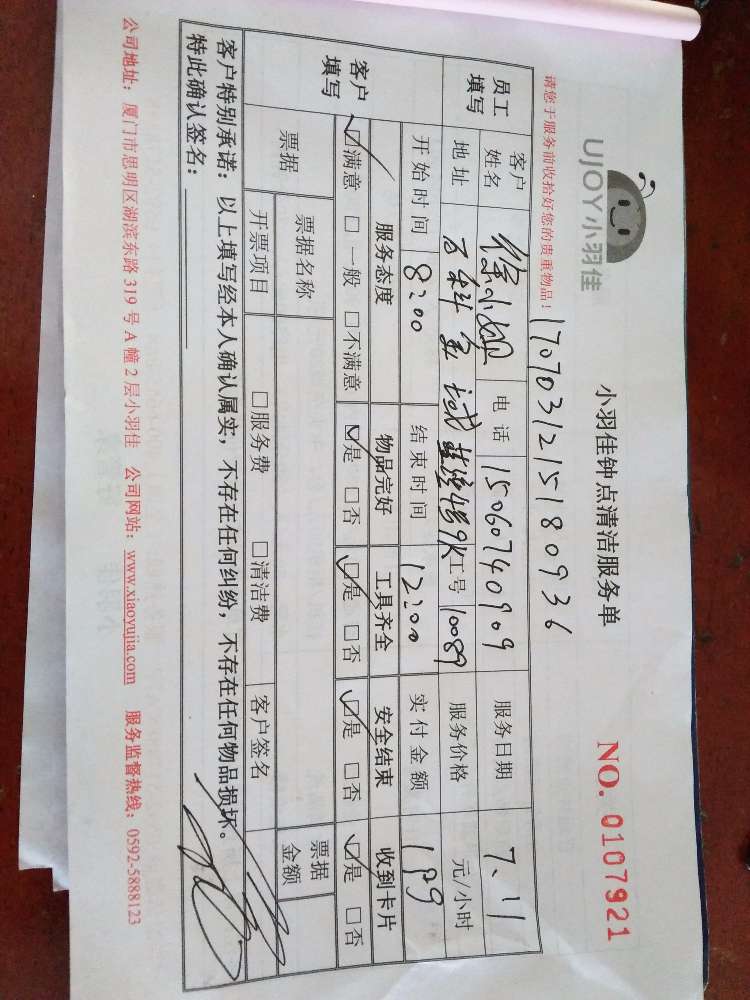 UJOY小羽佳
小羽佳钟点清洁服务单
NO. 0107921
请您于服务前收拾好您的贵重物品！
1707031215180936
员工填写 客户姓名 徐小姐 电话 15060740909 服务日期 7.11
地址 万科金域 工号 10089 服务价格 元/小时
开始时间 8:00 结束时间 12:00 实付金额 189
客户填写 服务态度 物品完好 工具齐全 安全结束 收到卡片
☑满意 □一般 □不满意 ☑是 □否 ☑是 □否 ☑是 □否 ☑是 □否
票据 票据名称 票据金额
开票项目 □服务费 □清洁费 客户签名
客户特别承诺：以上填写经本人确认属实，不存在任何纠纷，不存在任何物品损坏。
特此确认签名：
公司地址：厦门市思明区湖滨东路319号A幢2层小羽佳 公司网站：www.xiaoyujia.com 服务监督热线：0592-5888123